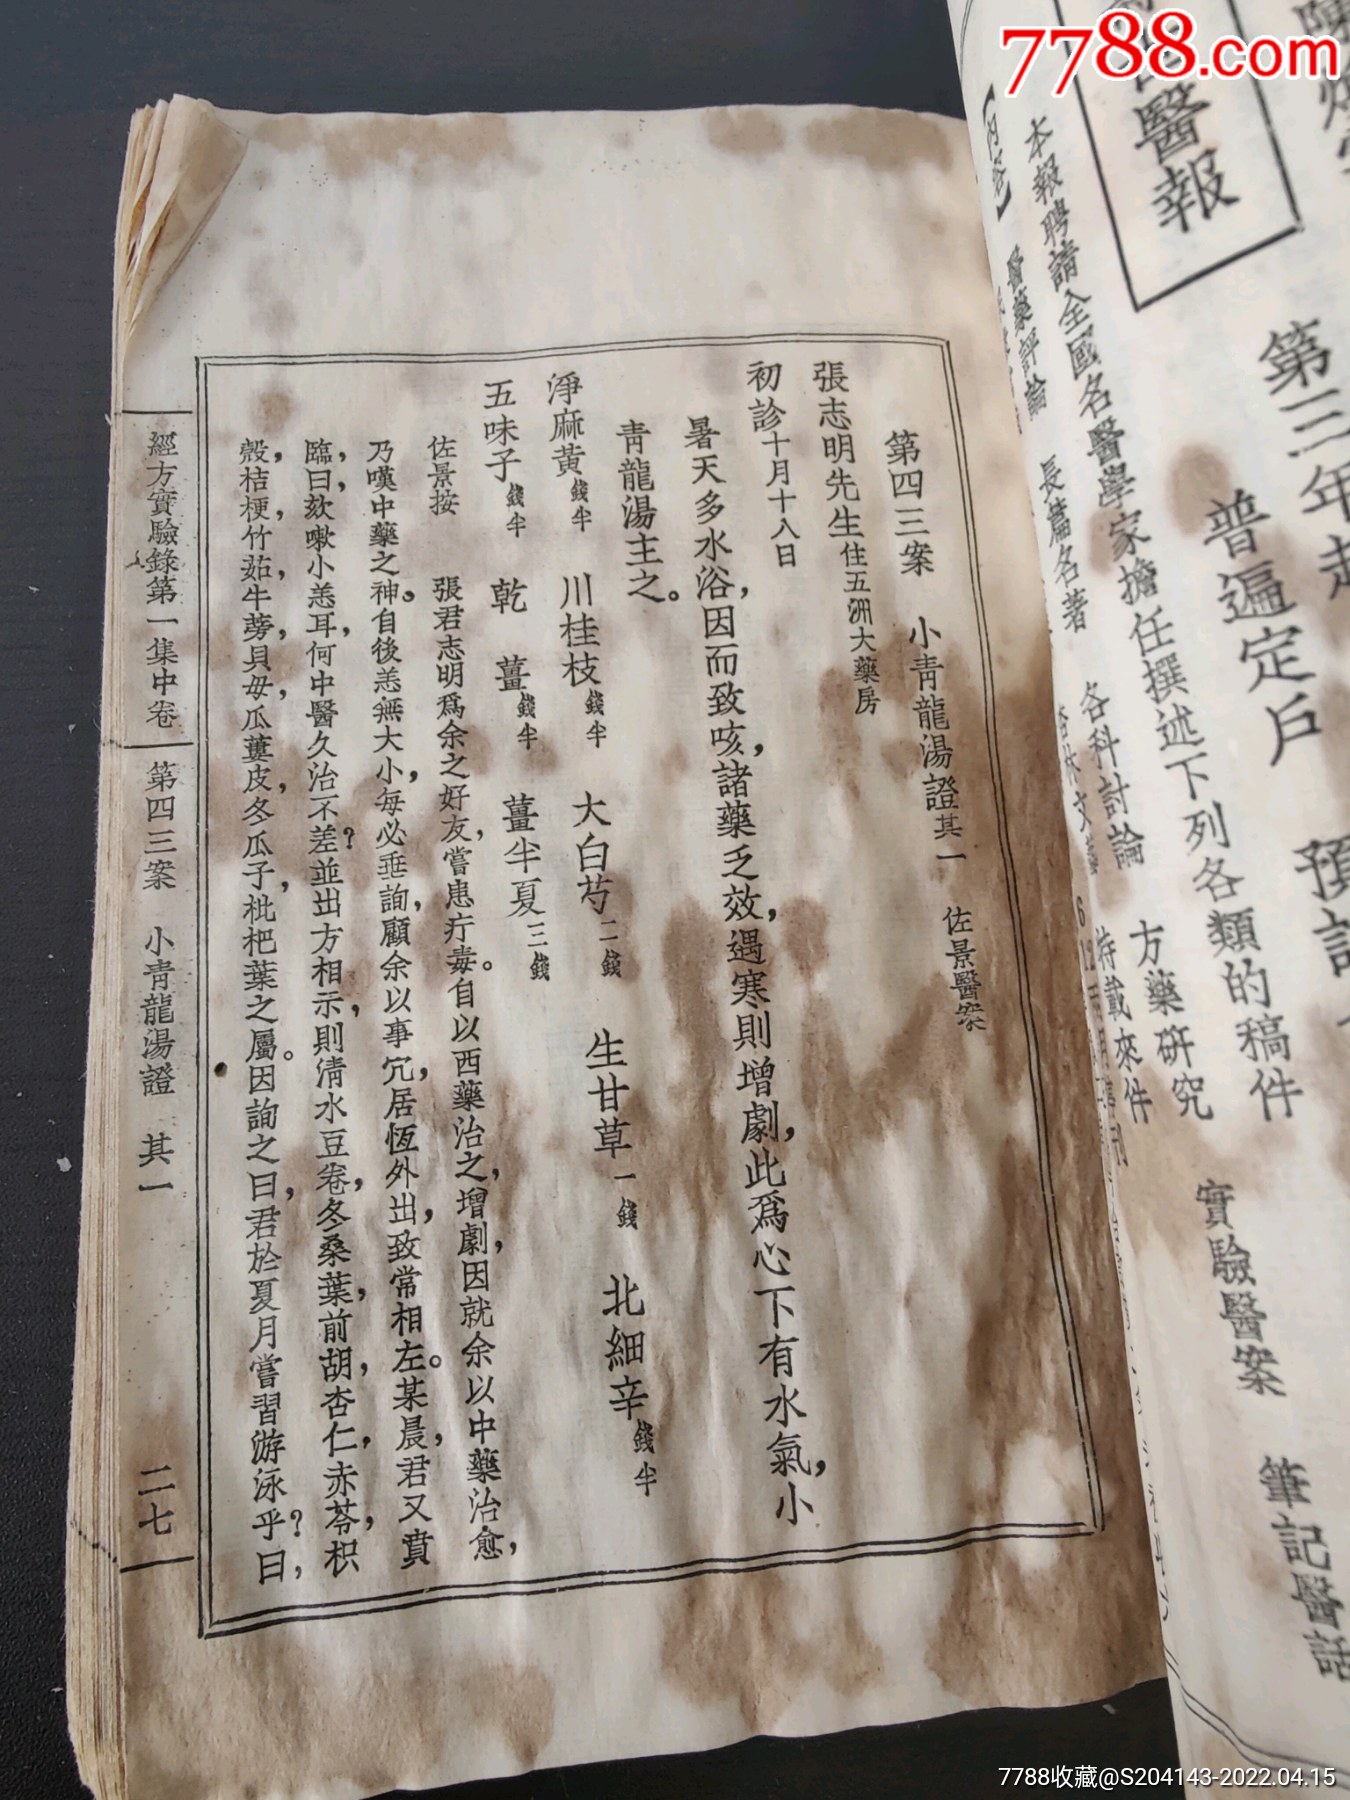 7788.com
醫報
第三年起
普遍定戶
預訂
本報聘請全國名醫學家擔任撰述下列各類的稿件
【內容】
醫藥評論
長篇名著
各科討論
方藥研究
實驗醫案
筆記醫話
特載來件
第四三案　小青龍湯證其一　佐景醫案
張志明先生住五洲大藥房
初診十月十八日
暑天多水浴，因而致咳，諸藥乏效，遇寒則增劇，此爲心下有水氣，小
青龍湯主之。
淨麻黃錢半　川桂枝錢半　大白芍二錢　生甘草一錢　北細辛錢半
五味子錢半　乾薑錢半　薑半夏三錢
佐景按　張君志明爲余之好友，嘗患疔毒。自以西藥治之，增劇，因就余以中藥治愈，
乃嘆中藥之神。自後恙無大小，每必垂詢，顧余以事冗，居恆外出，致常相左。某晨，君又賁
臨，曰，欬嗽小恙耳，何中醫久治不差？並出方相示，則清水豆卷，冬桑葉，前胡，杏仁，赤苓，枳
殼，桔梗，竹茹，牛蒡，貝母，瓜蔞皮，冬瓜子，枇杷葉之屬。因詢之曰，君於夏月嘗習游泳乎？曰，
經方實驗錄第一集中卷
第四三案　小青龍湯證　其一
二七
7788收藏@S204143-2022.04.15